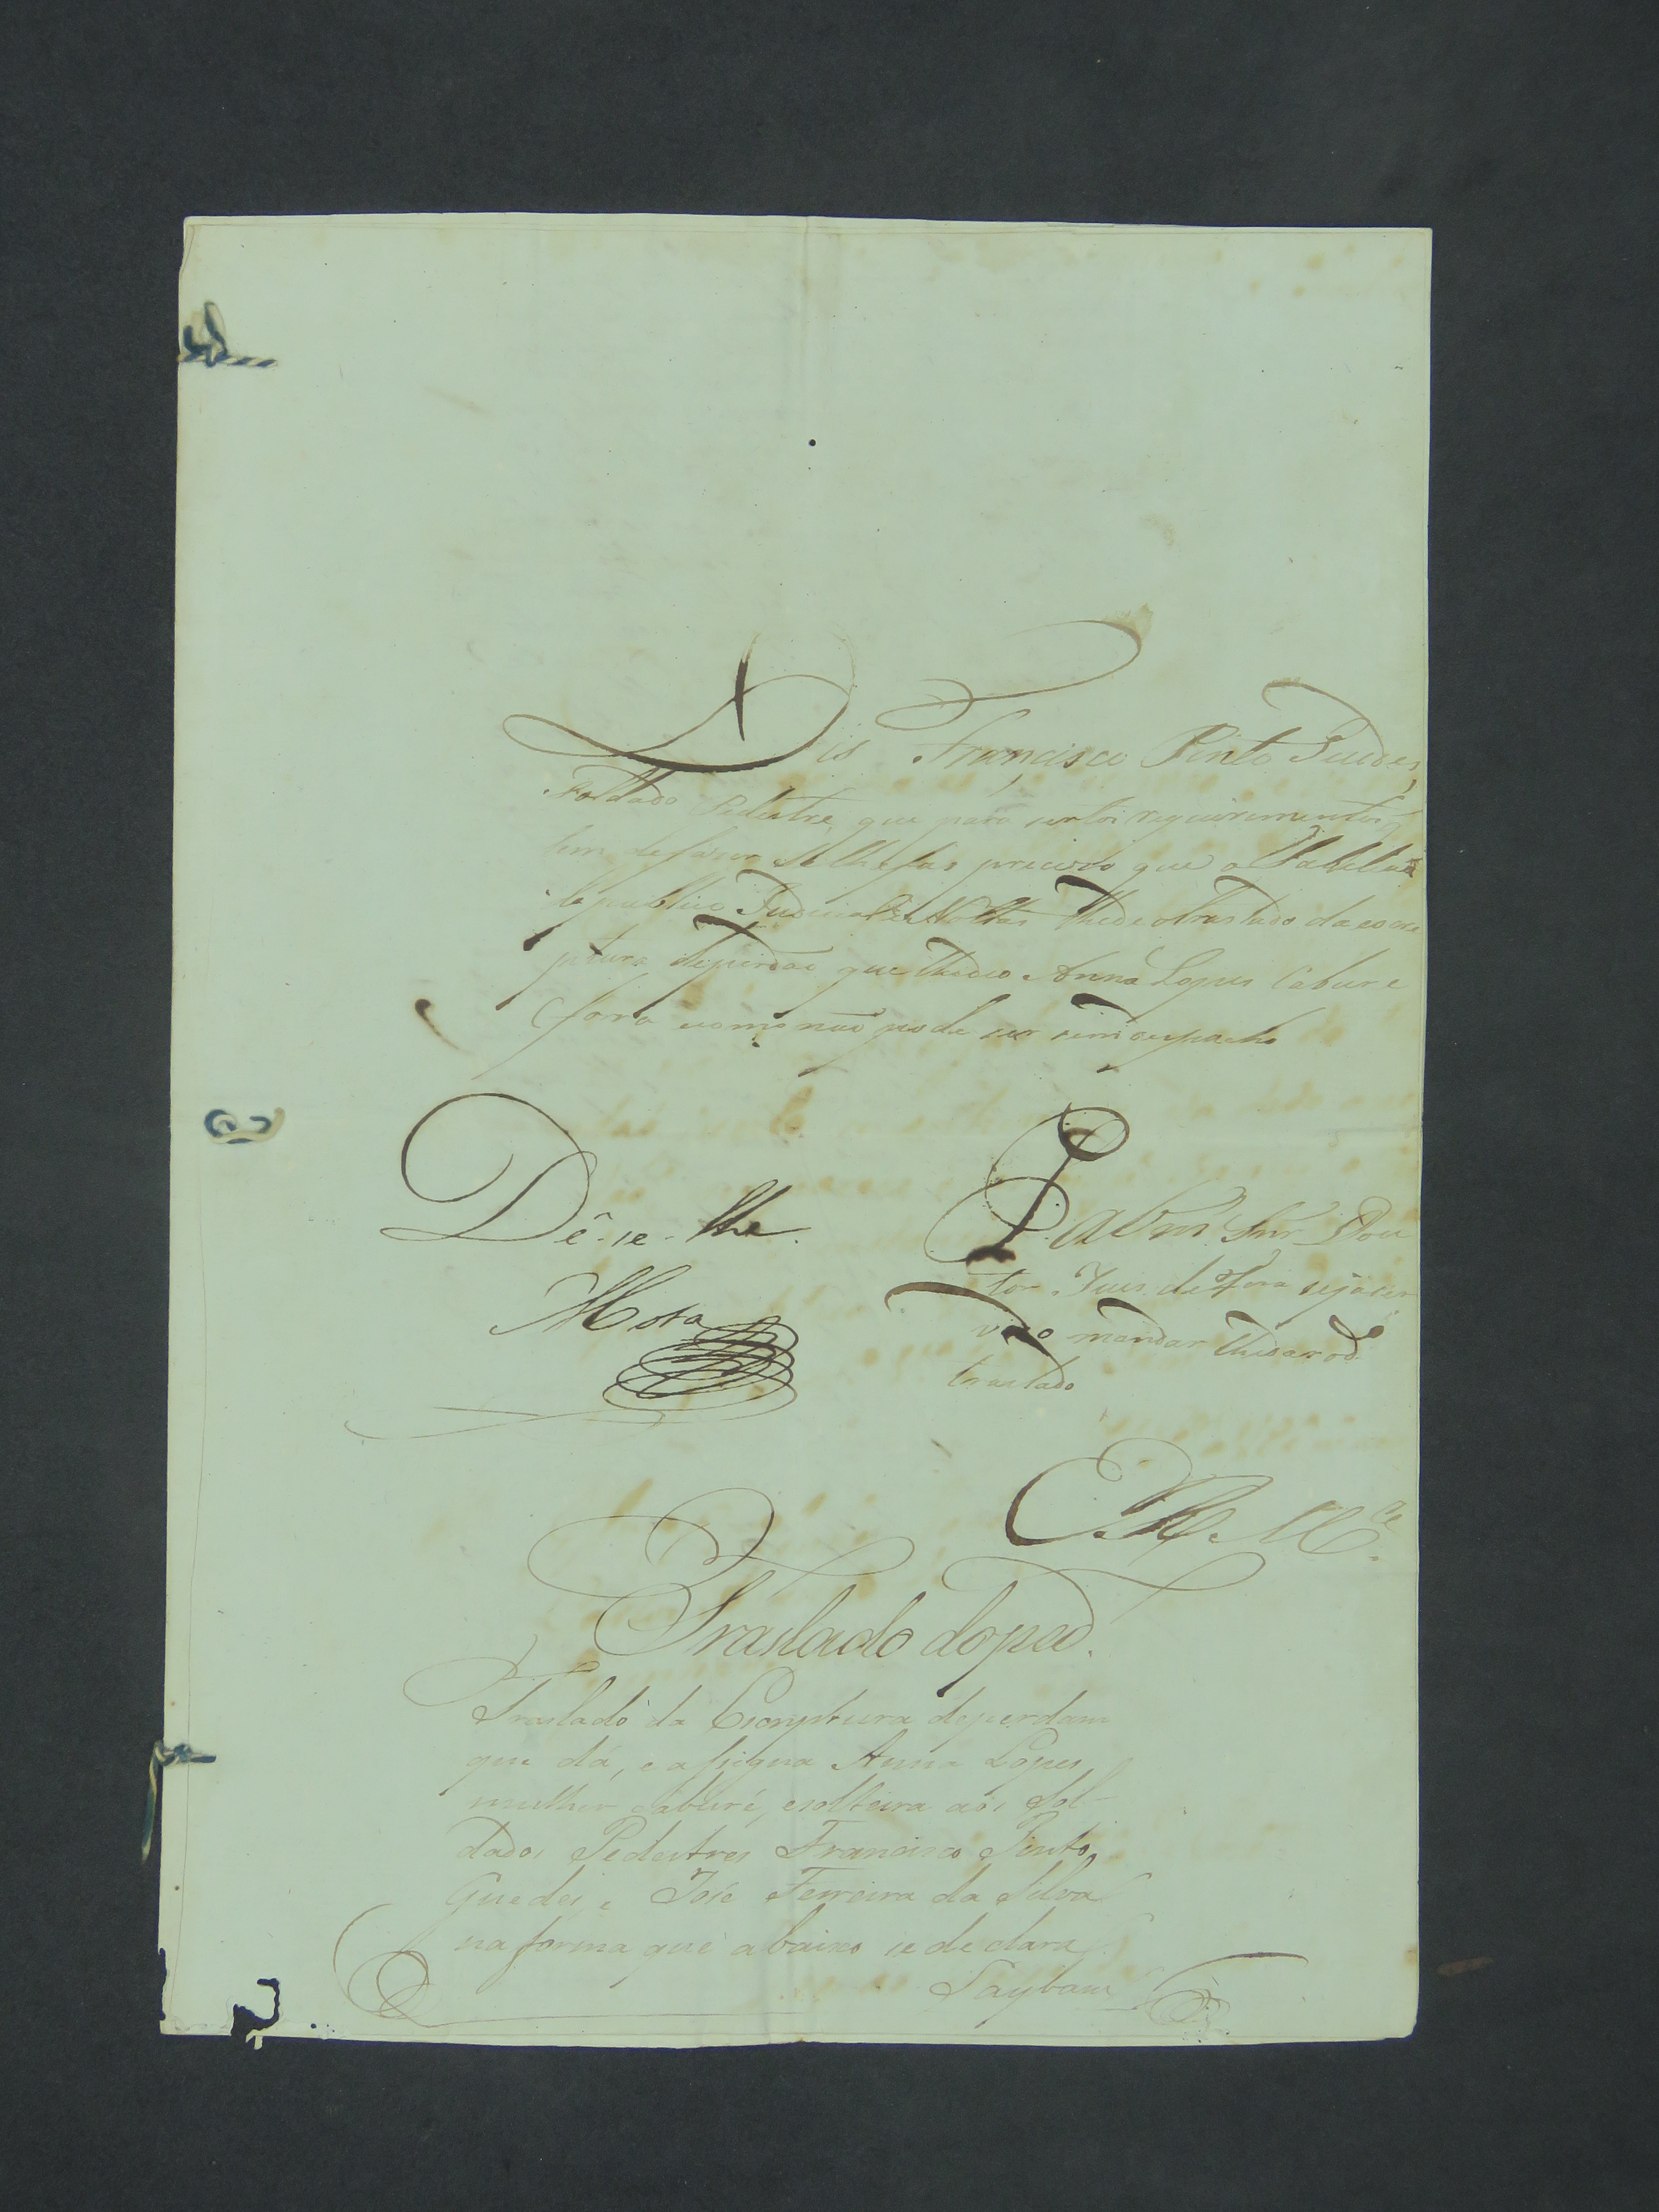 Dis Francisco Pinto Guedes,
Soldado Pedestre, que para certos requerimentos q
tem de faser se lhe fas preciso que o Tabeliaõ
de publico Judicial e Nottas lhe de o traslado da escri
ptura de perdaõ que lhe deo Anna Lopes Cabure
e para como naõ pode ser sem despacho
Dê-se-lhe.
Mota
P. a VmSnr. Dou
tor Juis de Fora seja ser
vido mandar lhe dar o d.
traslado
E. R. M.ce
Traslado do ped.
Traslado da Escriptura de perdam
que dá, e assigna Anna Lopes
mulher caburé, e solteira aos Sol-
dados Pedestres Francisco Pinto
Guedes, e José Ferreira da Silva
na forma que abaixo se declara
Saybam